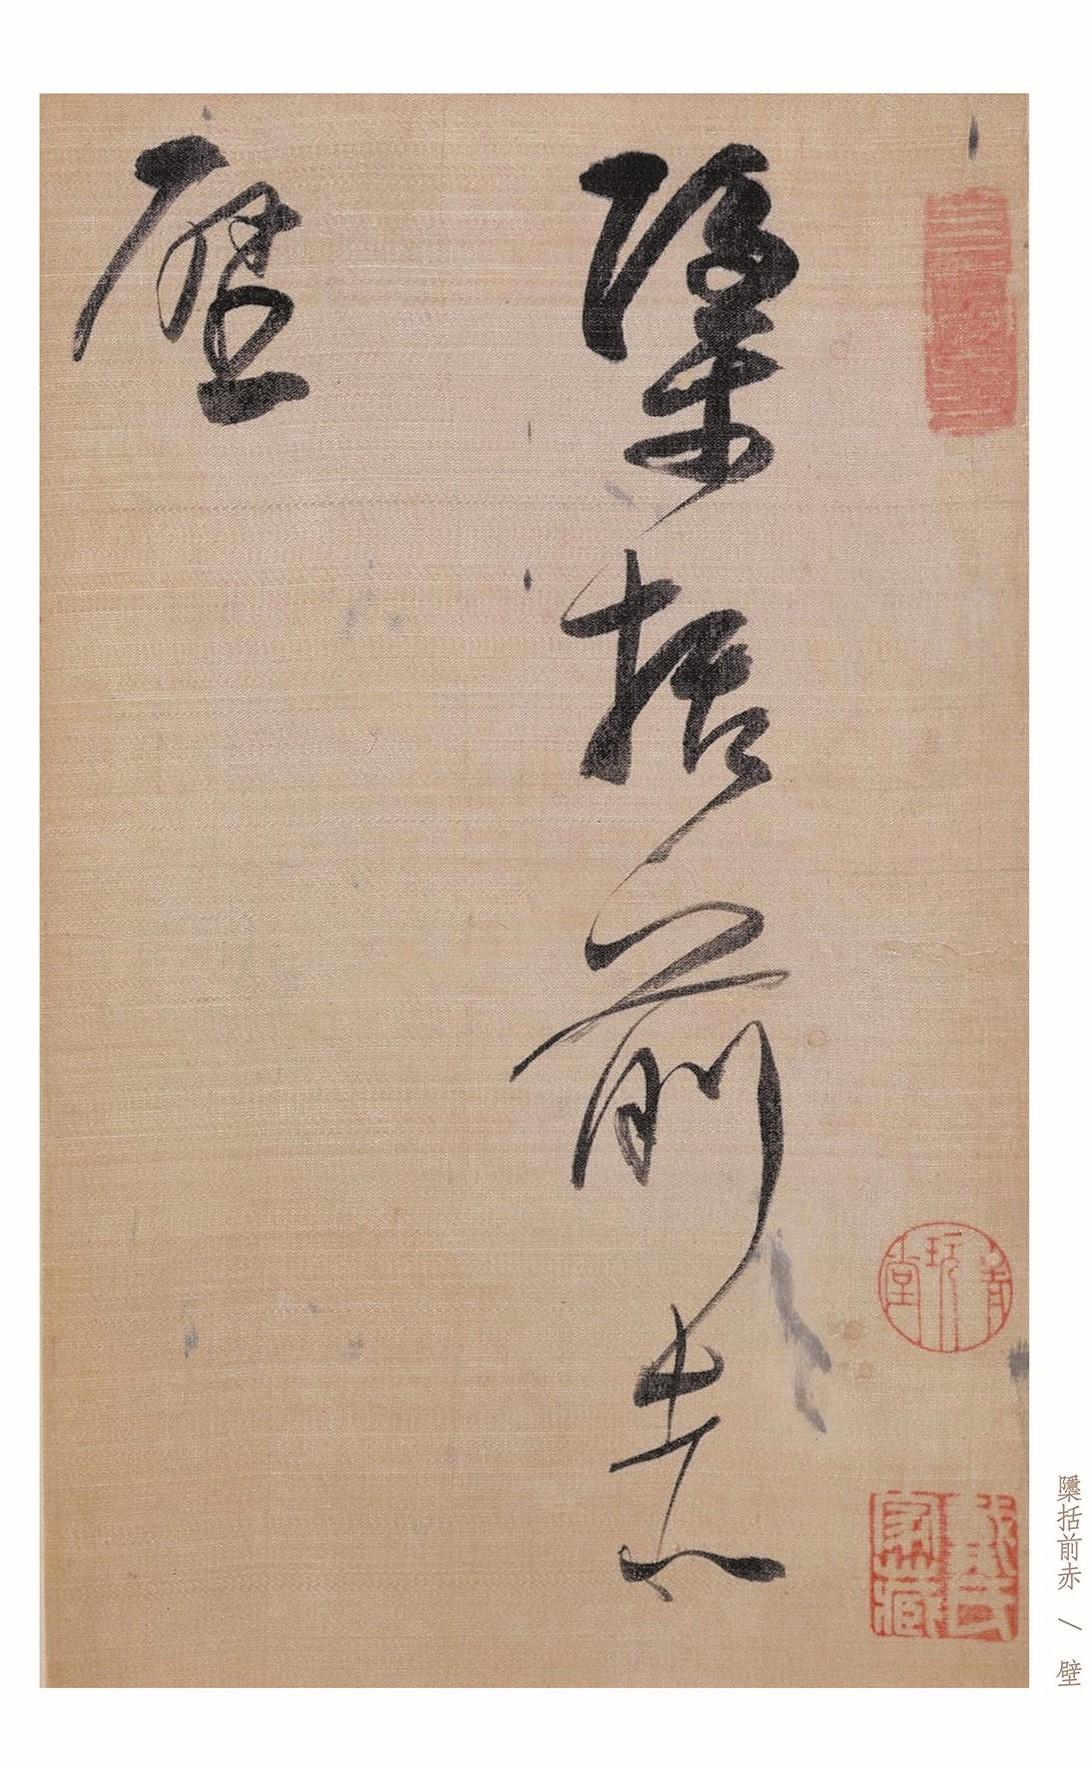 隱括前赤
壁
隱括前赤 / 壁